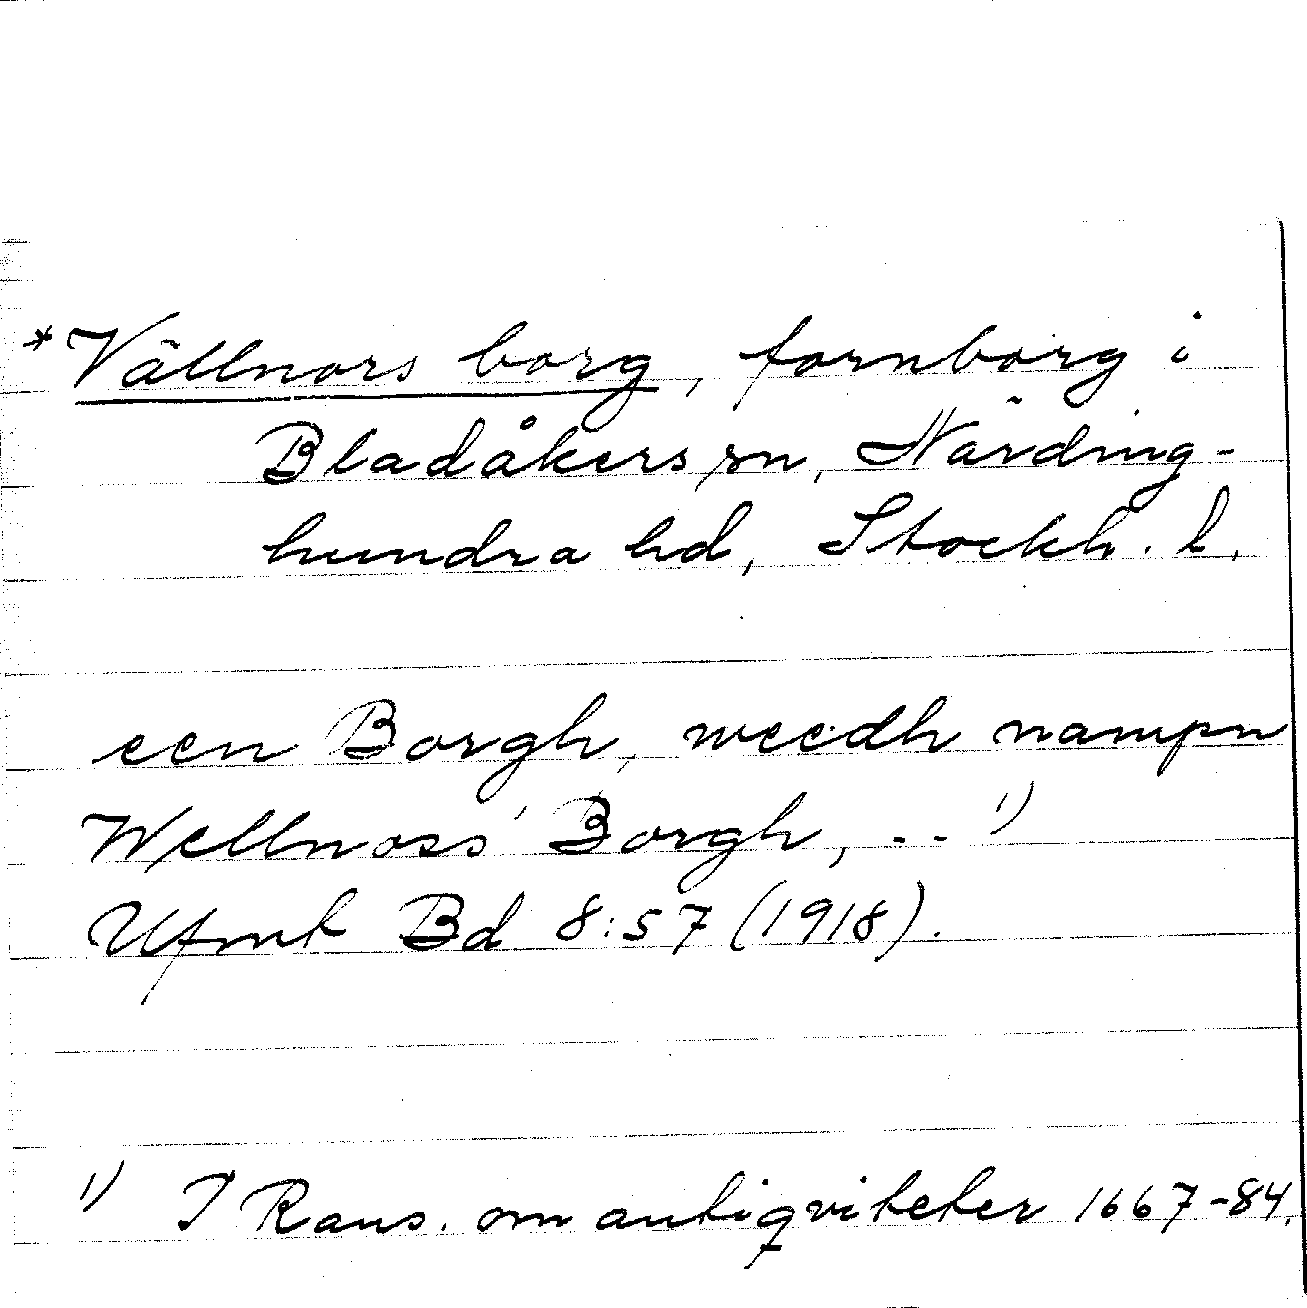 *Vällnors borg, fornborg i
Bladåkers sn, Närding-
hundra hd, Stockh. l.
een Borgh, weedh nampn
Wellnoss' Borgh, .. 1)
Ufmt Bd 8:57 (1918).
1) I Rans. om antiqviteter 1667-84.